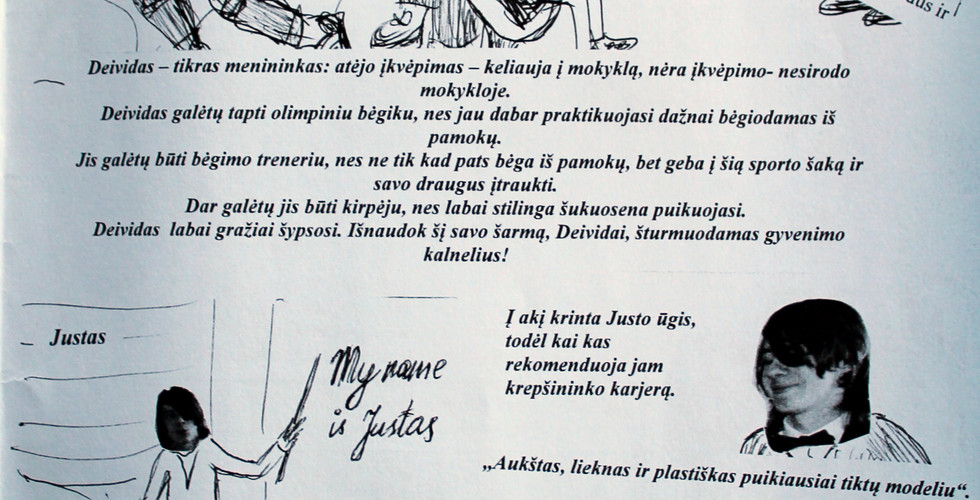 aus ir
Deividas – tikras menininkas: atėjo įkvėpimas – keliauja į mokyklą, nėra įkvėpimo- nesirodo
mokykloje.
Deividas galėtų tapti olimpiniu bėgiku, nes jau dabar praktikuojasi dažnai bėgiodamas iš
pamokų.
Jis galėtų būti bėgimo treneriu, nes ne tik kad pats bėga iš pamokų, bet geba į šią sporto šaką ir
savo draugus įtraukti.
Dar galėtų jis būti kirpėju, nes labai stilinga šukuosena puikuojasi.
Deividas labai gražiai šypsosi. Išnaudok šį savo šarmą, Deividai, šturmuodamas gyvenimo
kalnelius!
Justas
My name
is Justas
Į akį krinta Justo ūgis,
todėl kai kas
rekomenduoja jam
krepšininko karjerą.
„Aukštas, lieknas ir plastiškas puikiausiai tiktų modeliu“.